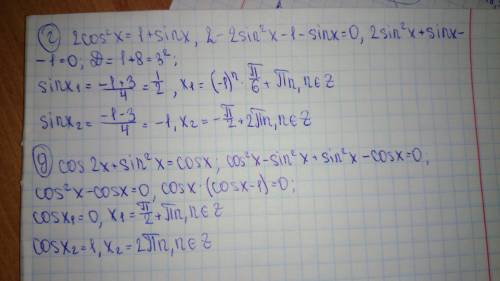 г) 2cos²x=1+sinx, 2-2sin²x-1-sinx=0, 2sin²x+sinx-
-1=0; D=1+8=3²;
sinx₁=(-1+3)/4=1/2, x₁=(-1)ⁿ·π/6+πn, n∈Z
sinx₂=(-1-3)/4=-1, x₂=-π/2+2πn, n∈Z
g) cos2x+sin²x=cosx; cos²x-sin²x+sin²x-cosx=0,
cos²x-cosx=0, cosx·(cosx-1)=0;
cosx₁=0, x₁=π/2+πn, n∈Z
cosx₂=1, x₂=2πn, n∈Z